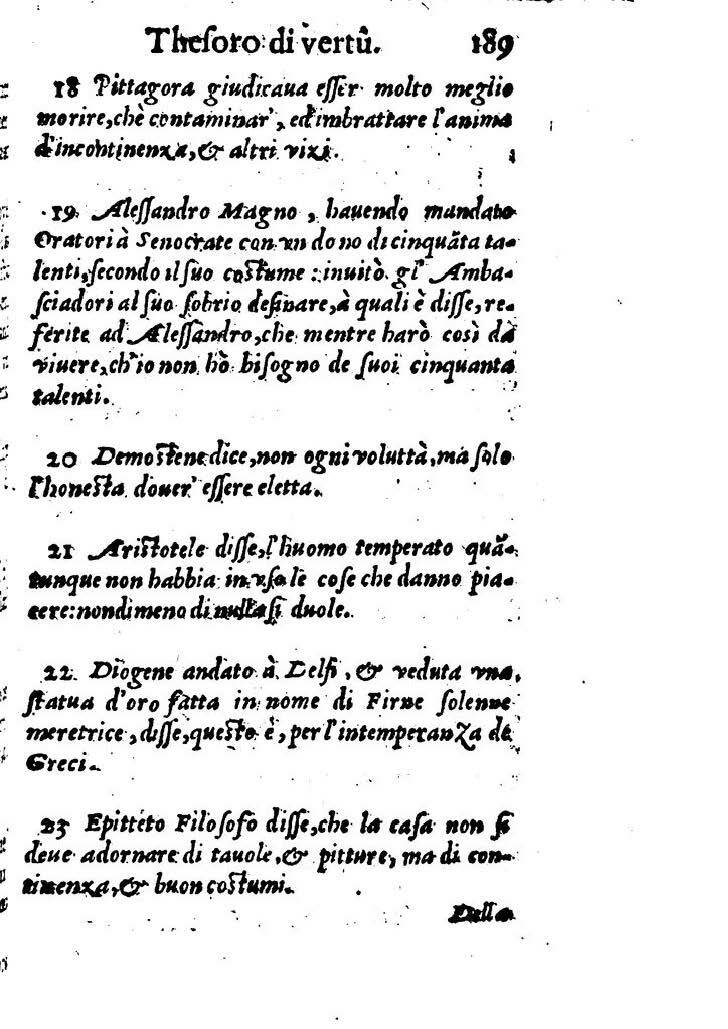 Theſoro di vertù. 189
18 Pittagora giudicaua eſſer molto meglio
morire, chè contaminar', ed imbrattare l'anima
d'incontinenza, & altri vizi.
19 Aleſſandro Magno, hauendo mandato
Oratori à Senocrate con vn dono di cinquãta ta-
lenti, ſecondo il ſuo coſtume: inuitò gl' Amba-
ſciadori al ſuo ſobrio deſinare, à quali è diſſe, re-
ferite ad Aleſſandro, che mentre harò così da
viuere, ch'io non hò biſogno de ſuoi cinquanta
talenti.
20 Demoſtene dice, non ogni voluttà, ma ſolo
l'honeſta douer' eſſere eletta.
21 Ariſtotele diſſe, l'huomo temperato quã-
tunque non habbia in vſo le coſe che danno pia-
cere: nondimeno di nulla ſi duole.
22 Diogene andato à Delfi, & veduta vna
ſtatua d'oro fatta in nome di Firne ſolenne
meretrice, diſſe, queſto è, per l'intemperanza de
Greci.
23 Epitteto Filoſofo diſſe, che la caſa non ſi
deue adornare di tauole, & pitture, ma di con-
tinenza, & buon coſtumi.
Della